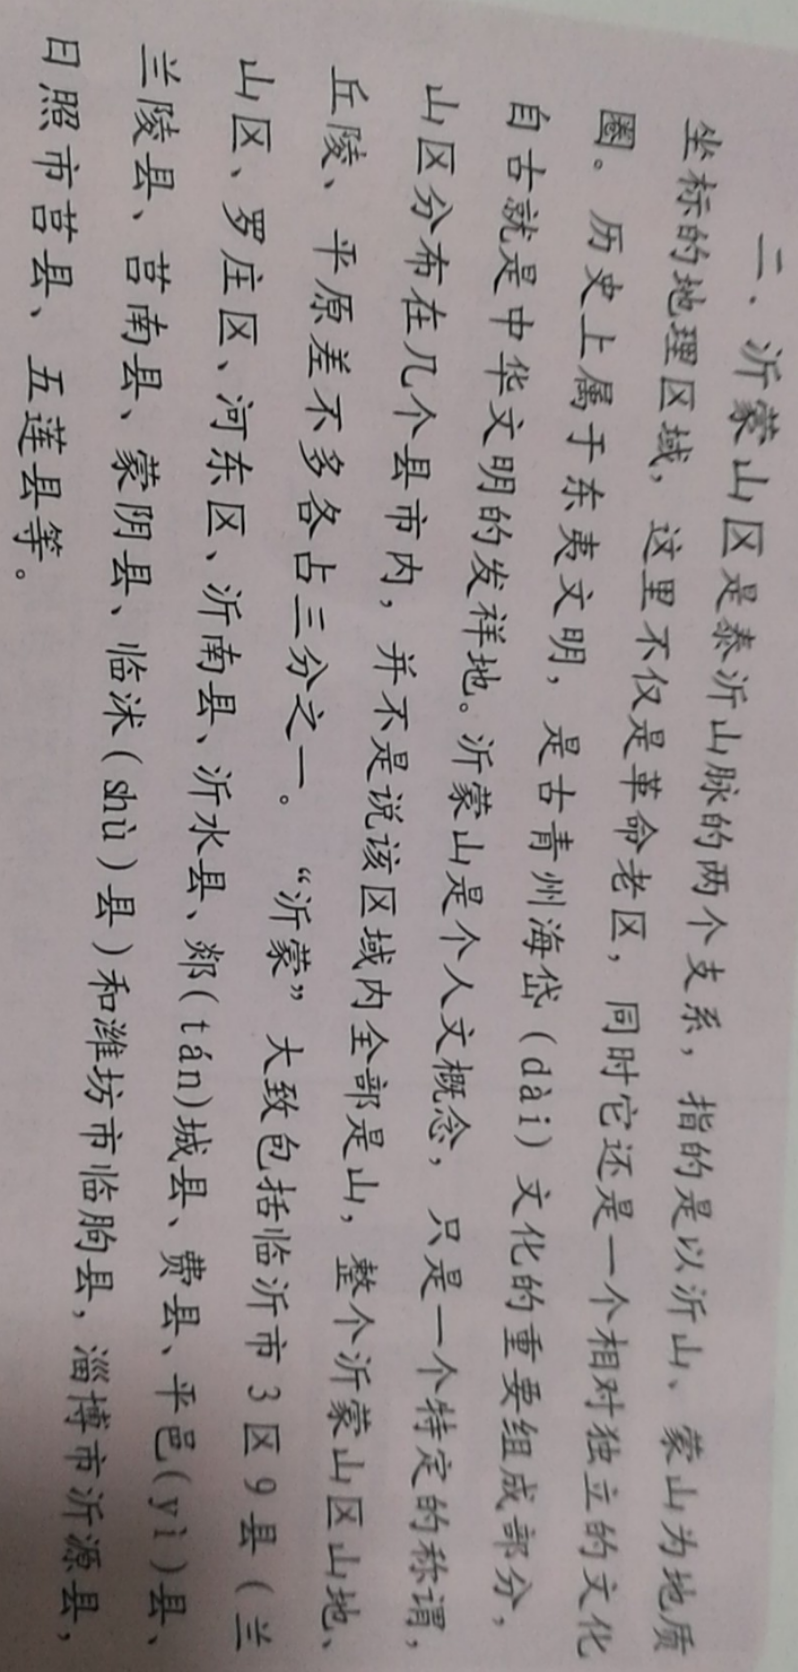 二、沂蒙山区是泰沂山脉的两个支系，指的是以沂山、蒙山为地质
坐标的地理区域，这里不仅是革命老区，同时它还是一个相对独立的文化
圈。历史上属于东夷文明，是古青州海岱（dài）文化的重要组成部分，
自古就是中华文明的发祥地。沂蒙山是个人文概念，只是一个特定的称谓，
山区分布在几个县市内，并不是说该区域内全部是山，整个沂蒙山区山地、
丘陵、平原差不多各占三分之一。“沂蒙”大致包括临沂市3区9县（兰
山区、罗庄区、河东区、沂南县、沂水县、郯(tán)城县、费县、平邑(yì)县、
兰陵县、莒南县、蒙阴县、临沭(shù)县)和潍坊市临朐县，淄博市沂源县，
日照市莒县、五莲县等。